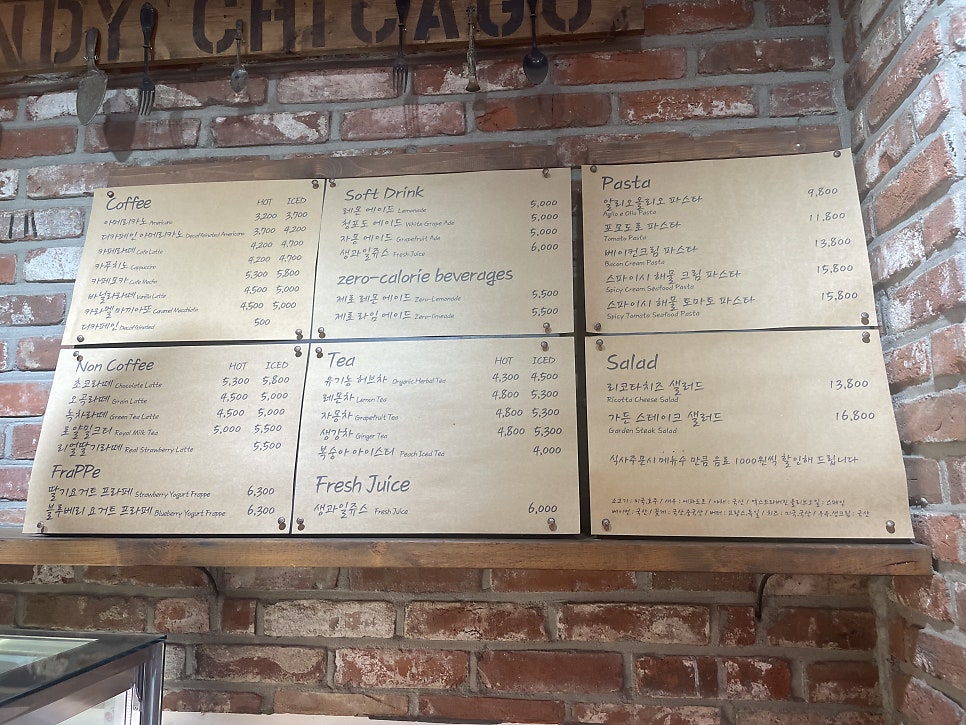 NDY CHICAGO
Coffee HOT ICED
아메리카노 Americano 3,200 3,700
디카페인 아메리카노 Decaffeinated Americano 3,700 4,200
카페라떼 Cafe Latte 4,200 4,700
카푸치노 Cappuccino 4,200 4,700
카페모카 Cafe Mocha 5,300 5,800
바닐라라떼 Vanilla Latte 4,500 5,000
카라멜 마끼아또 Caramel Macchiato 4,500 5,000
디카페인 Decaffeinated 500
Soft Drink
레몬 에이드 Lemonade 5,000
청포도 에이드 White Grape Ade 5,000
자몽 에이드 Grapefruit Ade 5,000
생과일쥬스 Fresh Juice 6,000
zero-calorie beverages
제로 레몬 에이드 Zero-Lemonade 5,500
제로 라임 에이드 Zero-limeade 5,500
Pasta
알리오올리오 파스타 9,800
Aglio e Olio Pasta
포모도로 파스타 11,800
Tomato Pasta
베이컨크림 파스타 13,800
Bacon Cream Pasta
스파이시 해물 크림 파스타 15,800
Spicy Cream Seafood Pasta
스파이시 해물 토마토 파스타 15,800
Spicy Tomato Seafood Pasta
Non Coffee HOT ICED
초코라떼 Chocolate Latte 5,300 5,800
오곡라떼 Grain Latte 4,500 5,000
녹차라떼 Green Tea Latte 4,500 5,000
로얄밀크티 Royal Milk Tea 5,000 5,500
리얼딸기라떼 Real Strawberry Latte 5,500
FraPPe
딸기요거트 프라페 Strawberry Yogurt Frappe 6,300
블루베리 요거트 프라페 Blueberry Yogurt Frappe 6,300
Tea HOT ICED
유기농 허브차 Organic Herbal Tea 4,300 4,500
레몬차 Lemon Tea 4,800 5,300
자몽차 Grapefruit Tea 4,800 5,300
생강차 Ginger Tea 4,800 5,300
복숭아 아이스티 Peach Iced Tea 4,000
Fresh Juice
생과일쥬스 Fresh Juice 6,000
Salad
리코타치즈 샐러드 13,800
Ricotta Cheese Salad
가든 스테이크 샐러드 16,800
Garden Steak Salad
식사주문시 메뉴수 만큼 음료 1000원씩 할인해 드립니다
소고기 : 미국,호주 / 새우 : 에콰도르 / 야채 : 국산 / 엑스트라버진 올리브오일 : 스페인
베이컨 : 국산 / 꽃게 : 국산,중국산 / 버터 : 프랑스,독일 / 치즈 : 미국,국산 / 우유,생크림 : 국산